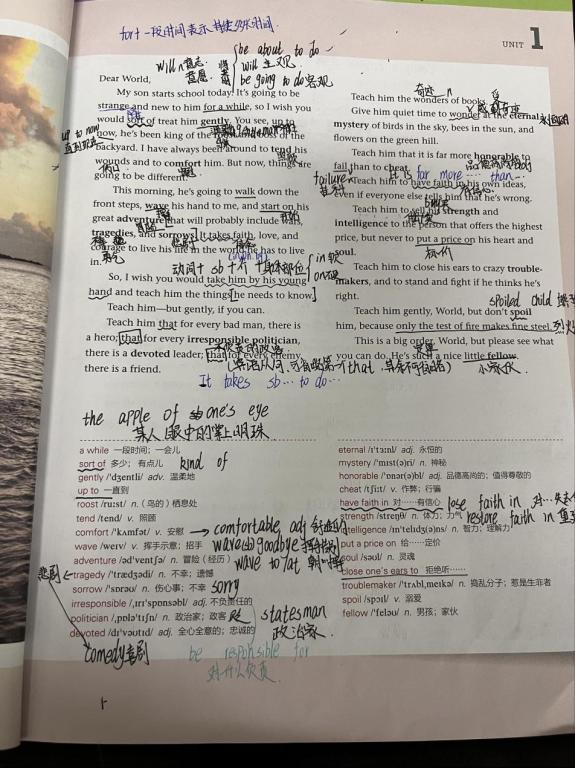 for + 一段时间表示持续多长时间
UNIT 1
be about to do
will 主观
be going to do 客观
Dear World,
My son starts school today! It's going to be
strange and new to him for a while, so I wish you
would sort of treat him gently. You see, up to
now, he's been king of the boss of the
backyard. I have always been around to tend his
wounds and to comfort him. But now, things are
going to be different.
This morning, he's going to walk down the
front steps, wave his hand to me, and start on his
great adventure that will probably include wars,
tragedies, and sorrows. It takes faith, love, and
courage to live his life in the world he has to live
in.
动词 + sb + 介 + 身体部位 in 软 on 硬
So, I wish you would take him by his young
hand and teach him the things he needs to know.
Teach him—but gently, if you can.
Teach him that for every bad man, there is
a hero; that for every irresponsible politician,
there is a devoted leader; that for every enemy,
there is a friend.
It takes sb … to do …
奇迹 n
Teach him the wonders of books.
Give him quiet time to wonder at the eternal
mystery of birds in the sky, bees in the sun, and
flowers on the green hill.
Teach him that it is far more honorable to
fail than to cheat.
It is far more … than …
failure n
Teach him to have faith in his own ideas,
even if everyone else tells him that he's wrong.
Teach him to sell his strength and
intelligence to the person that offers the highest
price, but never to put a price on his heart and
soul.
Teach him to close his ears to crazy trouble-
makers, and to stand and fight if he thinks he's
right.
spoiled child
Teach him gently, World, but don't spoil
him, because only the test of fire makes fine steel. 烈火
This is a big order, World, but please see what
you can do. He's such a nice little fellow.
小家伙
the apple of one's eye
某人眼中的掌上明珠
a while 一段时间；一会儿
sort of 多少；有点儿 kind of
gently /ˈdʒentli/ adv. 温柔地
up to 一直到
roost /ruːst/ n.（鸟的）栖息处
tend /tend/ v. 照顾
comfort /ˈkʌmfət/ v. 安慰 → comfortable adj
wave /weɪv/ v. 挥手示意；招手 wave sb goodbye
adventure /ədˈventʃə/ n. 冒险（经历） wave to /at
悲剧 ← tragedy /ˈtrædʒədi/ n. 不幸；遗憾
sorrow /ˈsɒrəʊ/ n. 伤心事；不幸 sorry
irresponsible /ˌɪrɪˈspɒnsəbl/ adj. 不负责任的
politician /ˌpɒləˈtɪʃn/ n. 政治家；政客 statesman
devoted /dɪˈvəʊtɪd/ adj. 全心全意的；忠诚的 政治家
comedy 喜剧
be responsible for
对什么负责
eternal /ɪˈtɜːnl/ adj. 永恒的
mystery /ˈmɪst(ə)ri/ n. 神秘
honorable /ˈɒnər(ə)bl/ adj. 品德高尚的；值得尊敬的
cheat /tʃiːt/ v. 作弊；行骗
have faith in 对……有信心 lose faith in 对…失去
strength /streŋθ/ n. 体力；力气 restore faith in
intelligence /ɪnˈtelɪdʒ(ə)ns/ n. 智力；理解力
put a price on 给……定价
soul /səʊl/ n. 灵魂
close one's ears to 拒绝听……
troublemaker /ˈtrʌblˌmeɪkə/ n. 捣乱分子；惹是生非者
spoil /spɔɪl/ v. 溺爱
fellow /ˈfeləʊ/ n. 男孩；家伙